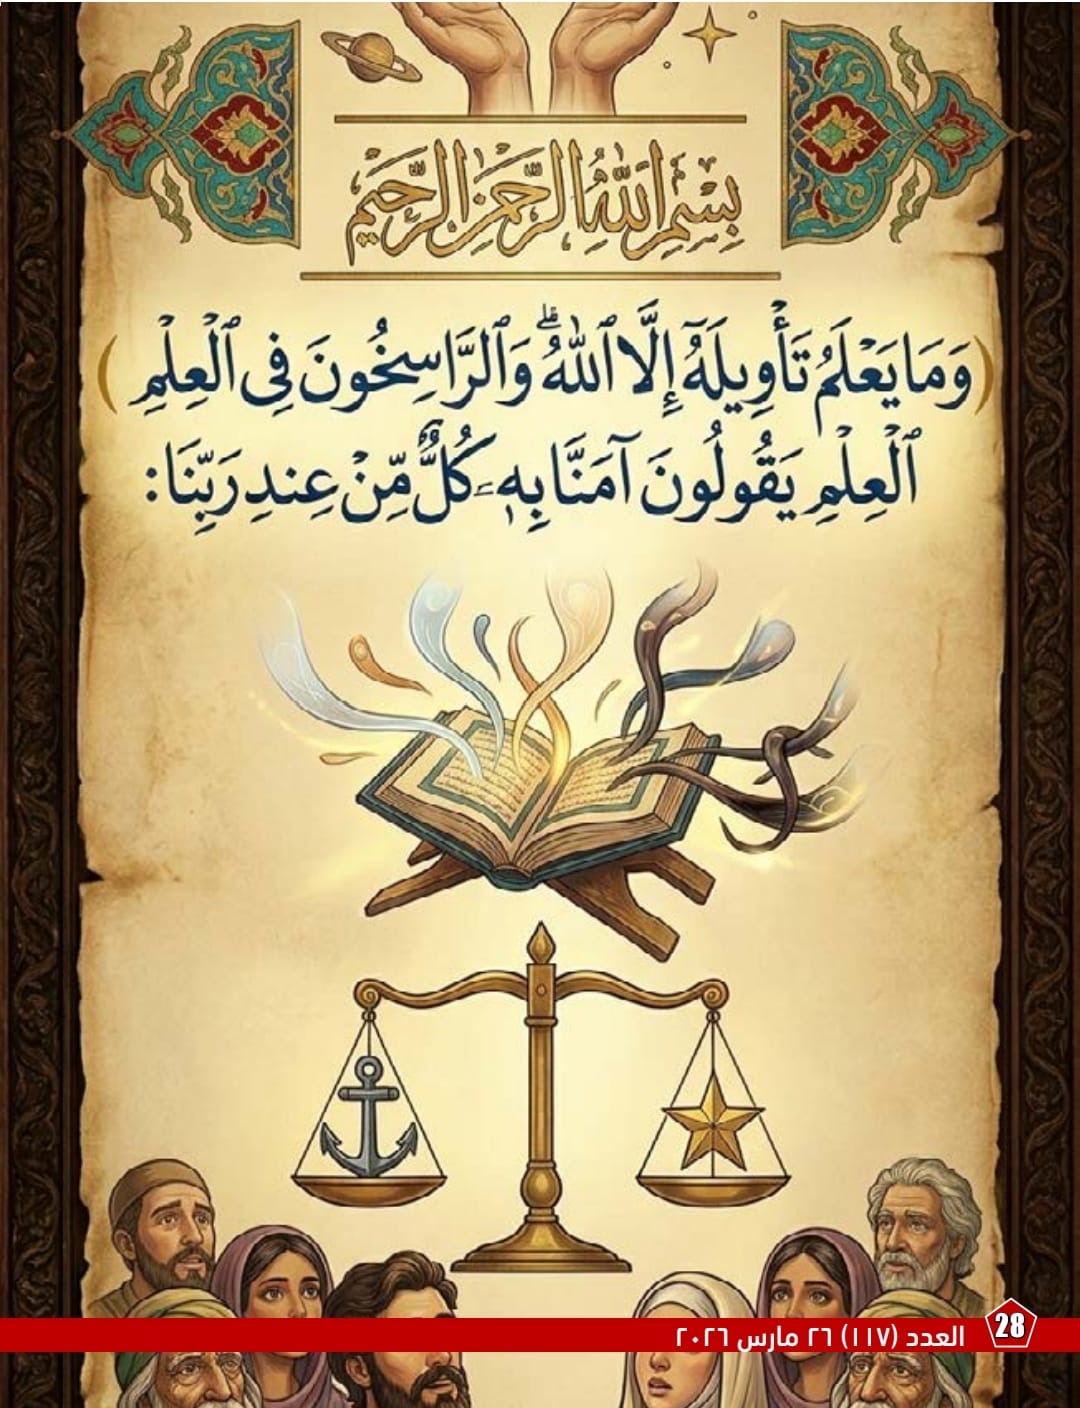 بِسْمِ اللَّهِ الرَّحْمَنِ الرَّحِيمِ
(وَمَا يَعْلَمُ تَأْوِيلَهُ إِلَّا ٱللَّهُ ۗ وَٱلرَّاسِخُونَ فِى ٱلْعِلْمِ)
ٱلْعِلْمِ يَقُولُونَ آمَنَّا بِهِۦ كُلٌّ مِّنْ عِندِ رَبِّنَا:
28 العدد (١١٧) ٢٦ مارس ٢٠٢٦